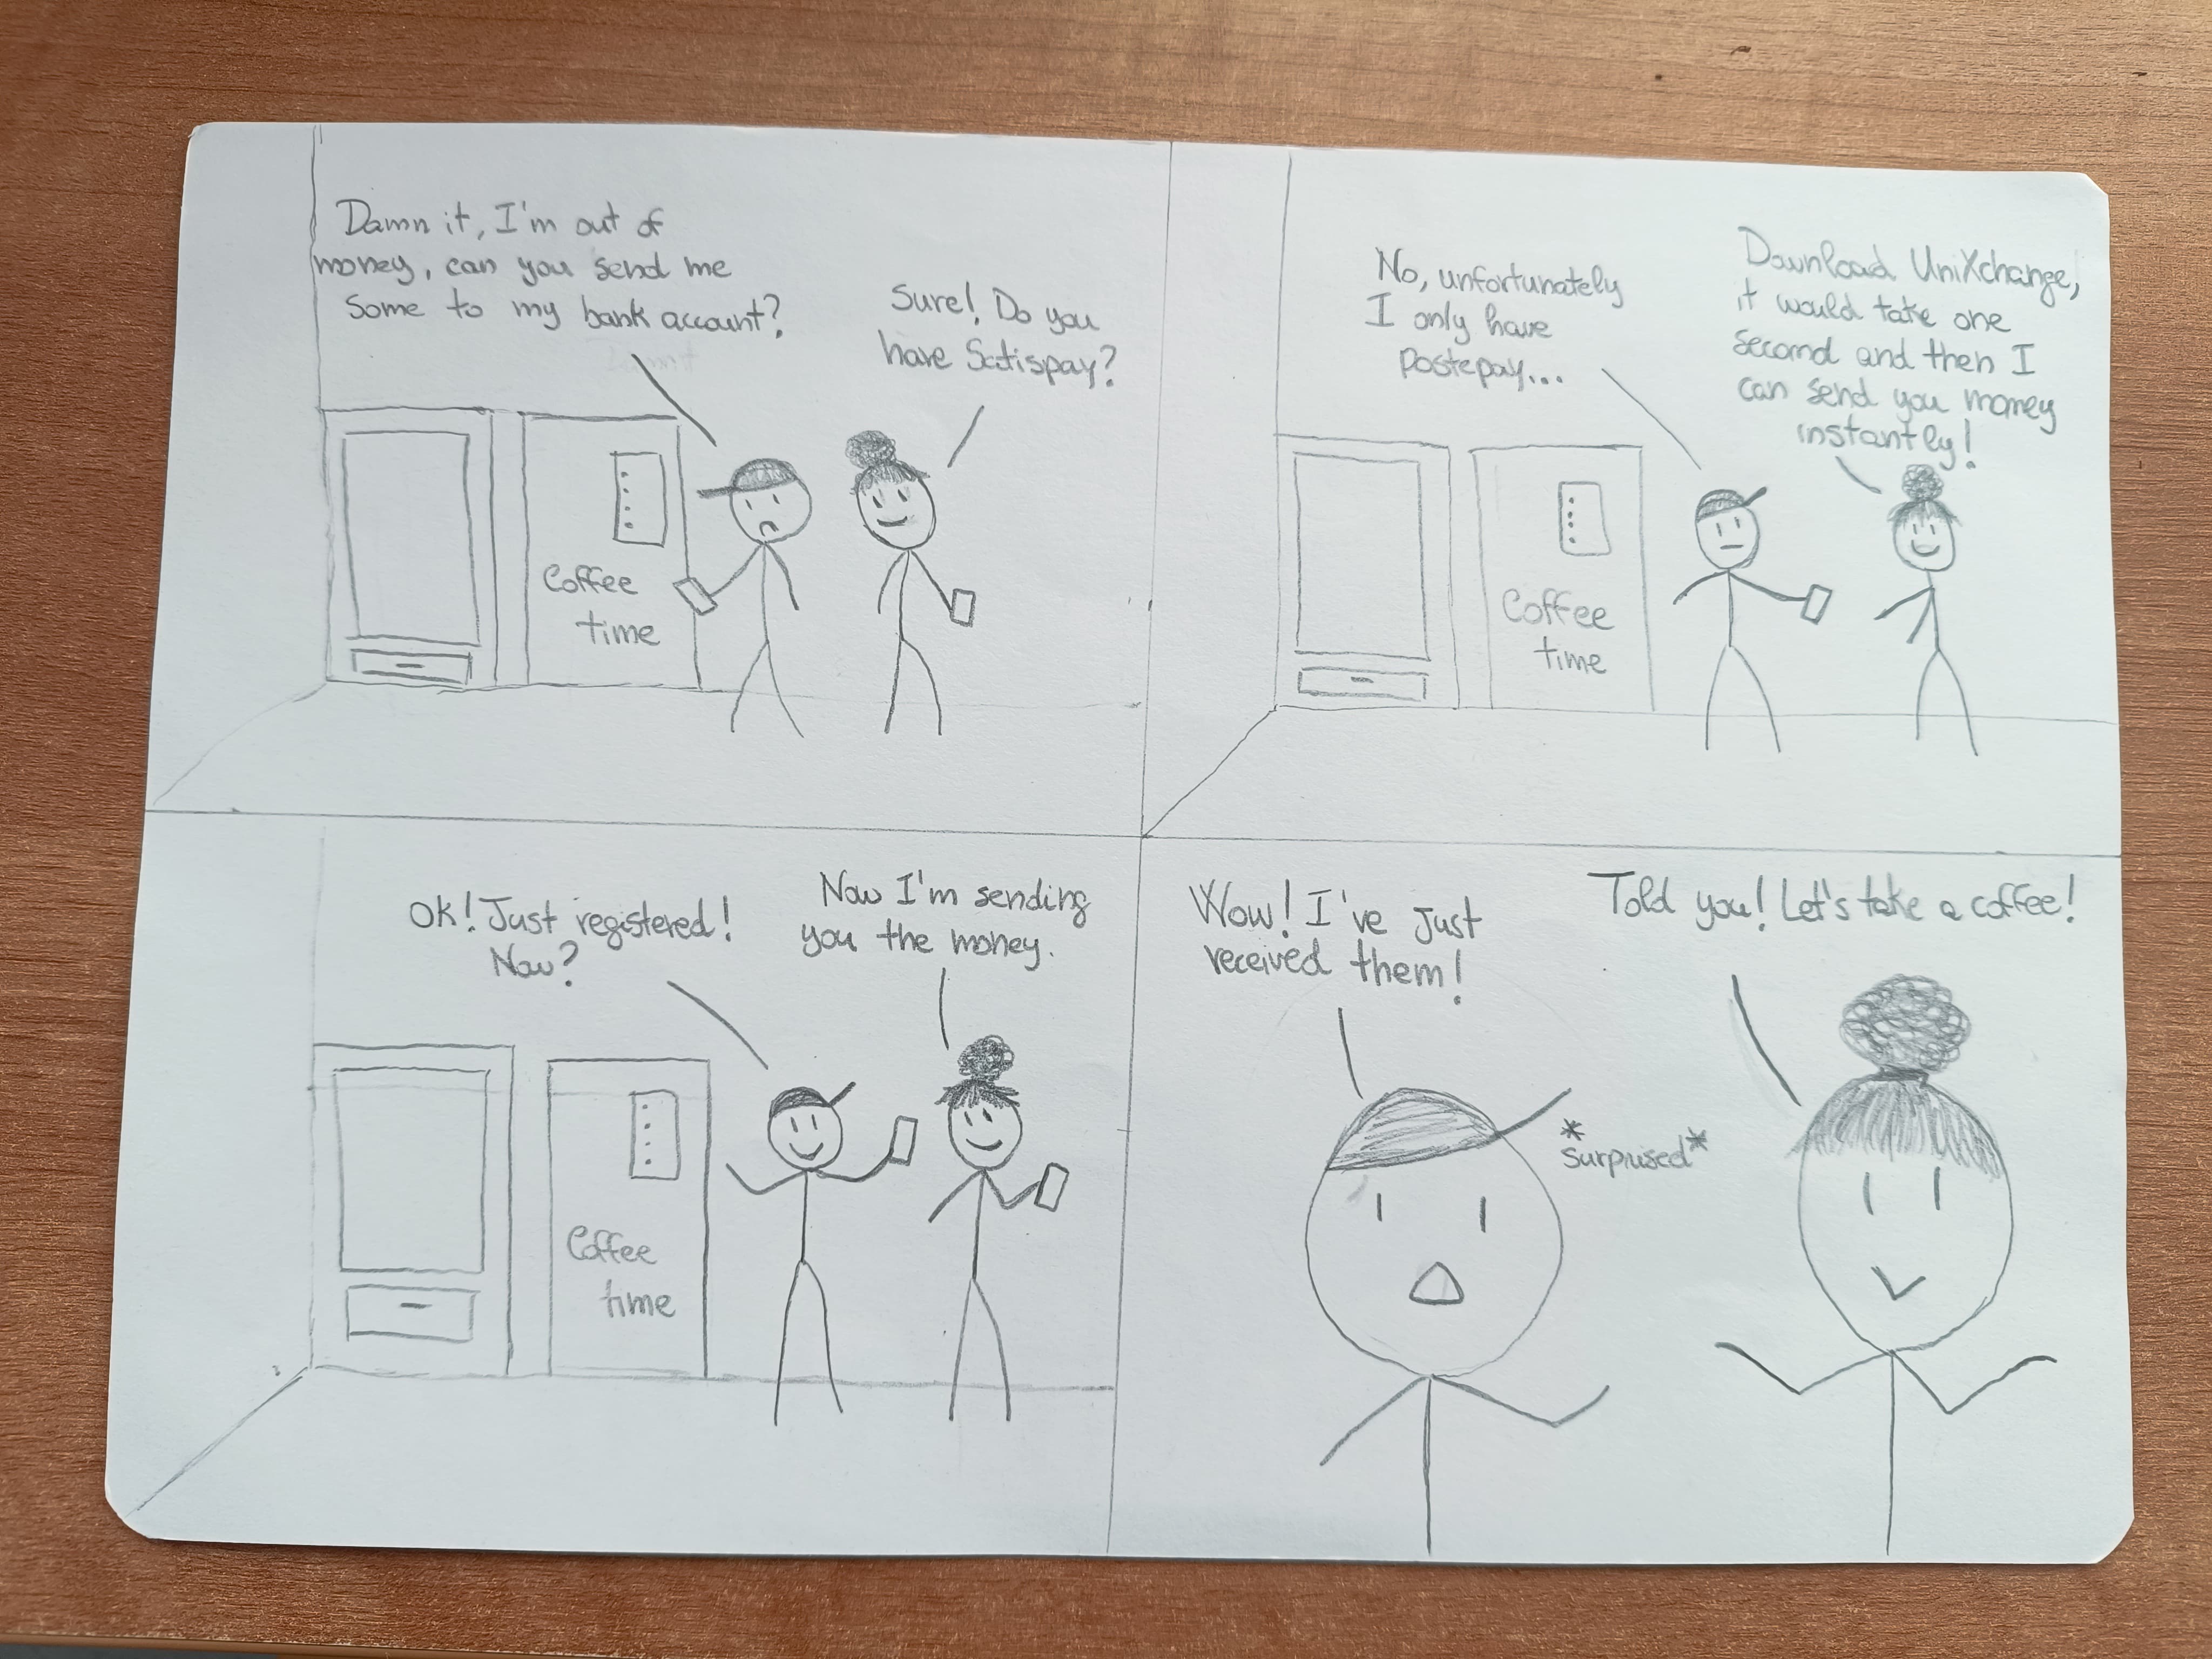 Damn it, I'm out of
money, can you send me
some to my bank account?
Sure! Do you
have Satispay?
Coffee
time
No, unfortunately
I only have
postepay...
Download UniXchange,
it would take one
second and then I
can send you money
instantly!
Coffee
time
OK! Just registered!
Now?
Now I'm sending
you the money.
Coffee
time
Wow! I've just
received them!
*Surprised*
Told you! Let's take a coffee!